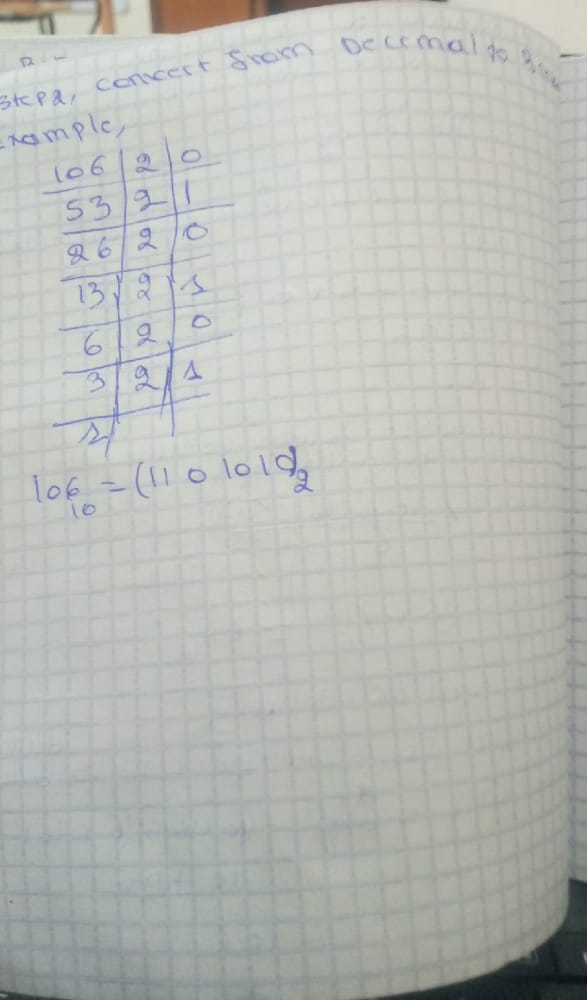 Step2, convert from Decimal to
Example,
106 2 0
53 2 1
26 2 0
13 2 1
6 2 0
3 2 1
1
106₁₀ = (1101010)₂